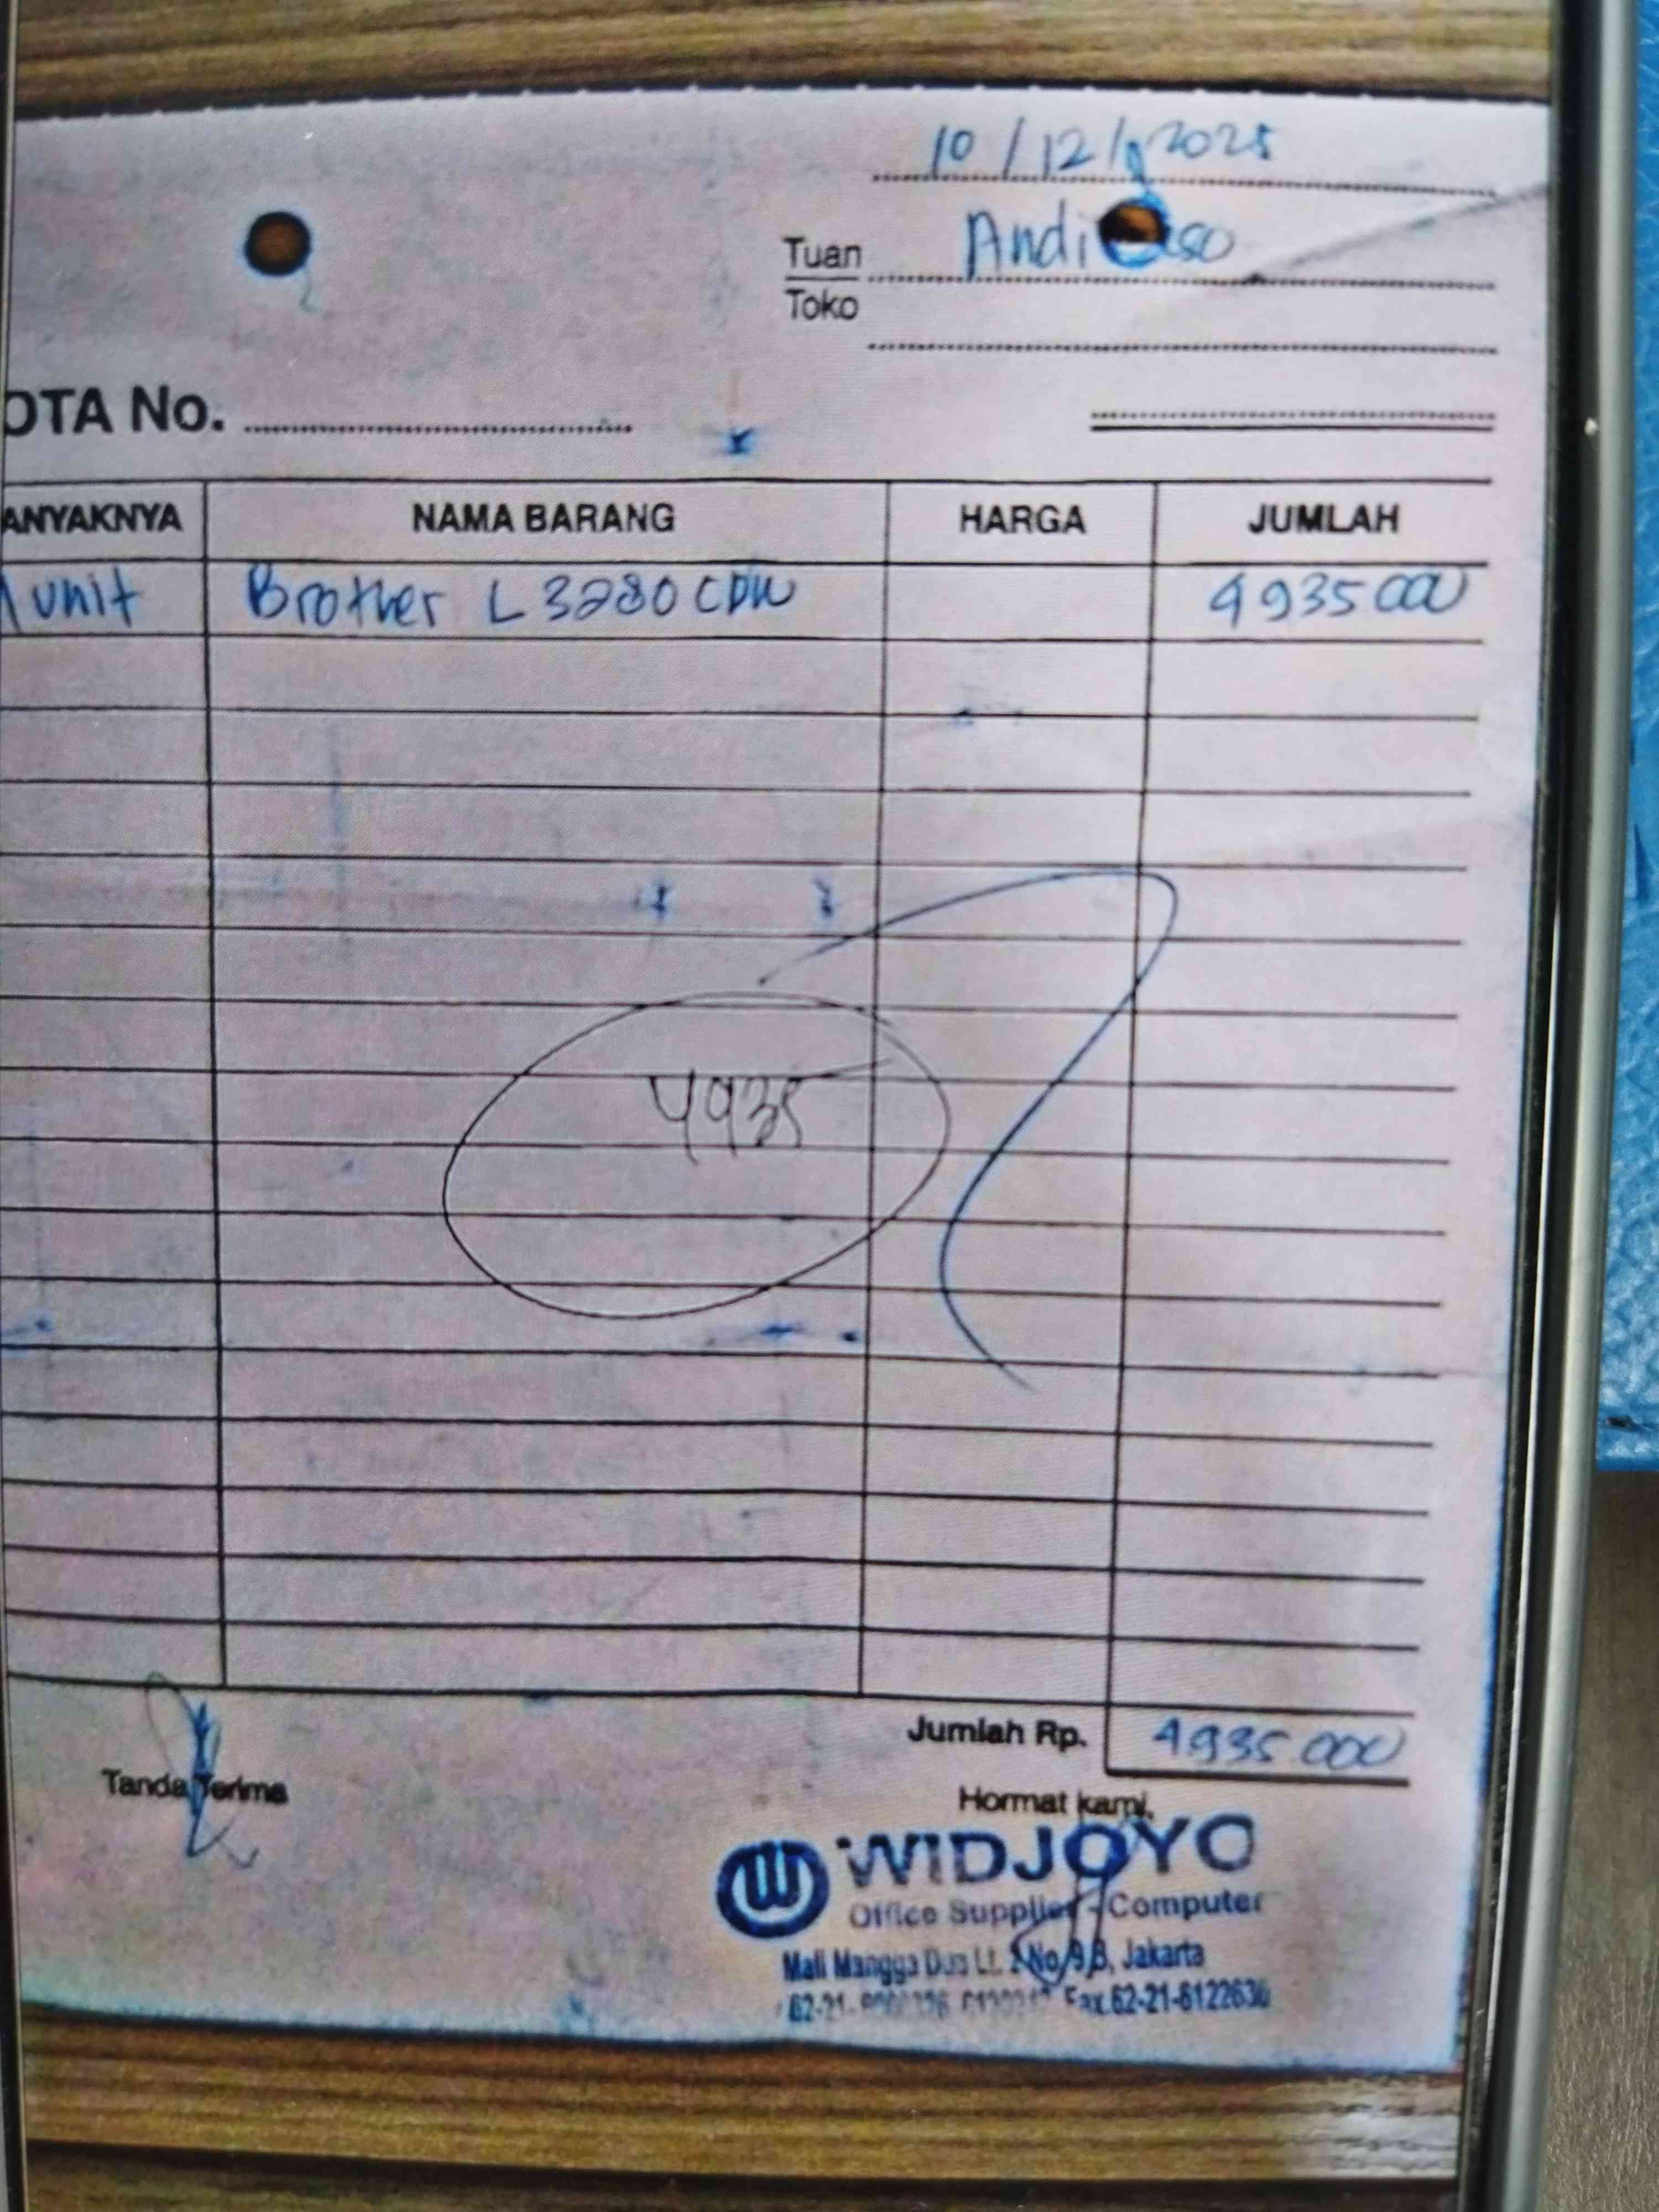 10/12/2025
Tuan Andi
Toko
OTA No.
ANYAKNYA NAMA BARANG HARGA JUMLAH
1 unit Brother L3280CDW 4935000
4935
Jumlah Rp. 4935000
Tanda Terima Hormat kami,
WIDJOYO
Office Supplies - Computer
Mall Mangga Dua Lt. No. Jakarta
62-21- Fax.62-21-6122630